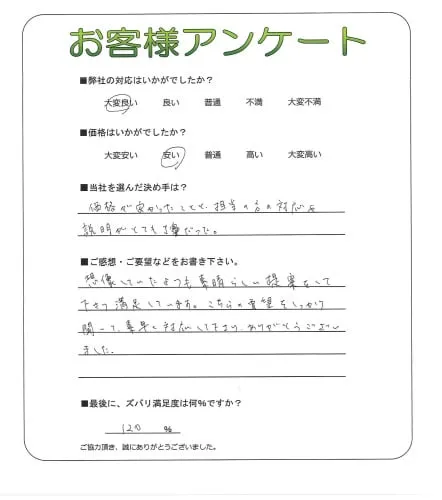 お客様アンケート
■弊社の対応はいかがでしたか?
大変良い 良い 普通 不満 大変不満
■価格はいかがでしたか?
大変安い 安い 普通 高い 大変高い
■当社を選んだ決め手は?
価格が安かったことと、担当の方の対応と
説明がとても だった。
■ご感想・ご要望などをお書き下さい。
想像していたよりも素晴らしい提案をして
下さり満足しています。こちらの要望をしっかり
聞いて、素早く対応して下さり、ありがとうござい
ました。
■最後に、ズバリ満足度は何%ですか?
120 %
ご協力頂き、誠にありがとうございました。